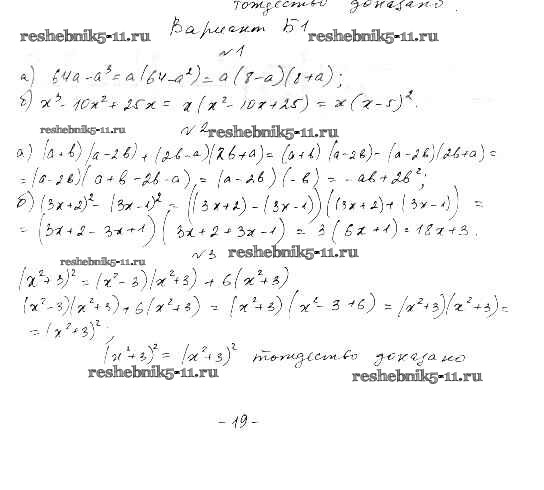 тождество доказано.
reshebnik5-11.ru Вариант Б1 reshebnik5-11.ru
№1
а) 64a-a³=a(64-a²)=a(8-a)(8+a);
б) x³-10x²+25x = x(x²-10x+25) = x(x-5)².
reshebnik5-11.ru №2 reshebnik5-11.ru
а) (a+b)(a-2b)+(2b-a)(2b+a)=(a+b)(a-2b)-(a-2b)(2b+a)=
=(a-2b)(a+b-2b-a)=(a-2b)(-b)=-ab+2b²;
б) (3x+2)²-(3x-1)²=((3x+2)-(3x-1))((3x+2)+(3x-1)) =
=(3x+2-3x+1)(3x+2+3x-1) = 3(6x+1)=18x+3.
reshebnik5-11.ru №3 reshebnik5-11.ru
(x²+3)²=(x²-3)(x²+3)+6(x²+3)
(x²-3)(x²+3)+6(x²+3) = (x²+3)(x²-3+6)=(x²+3)(x²+3)=
=(x²+3)²;
(x²+3)²=(x²+3)² тождество доказано
reshebnik5-11.ru reshebnik5-11.ru
-19-